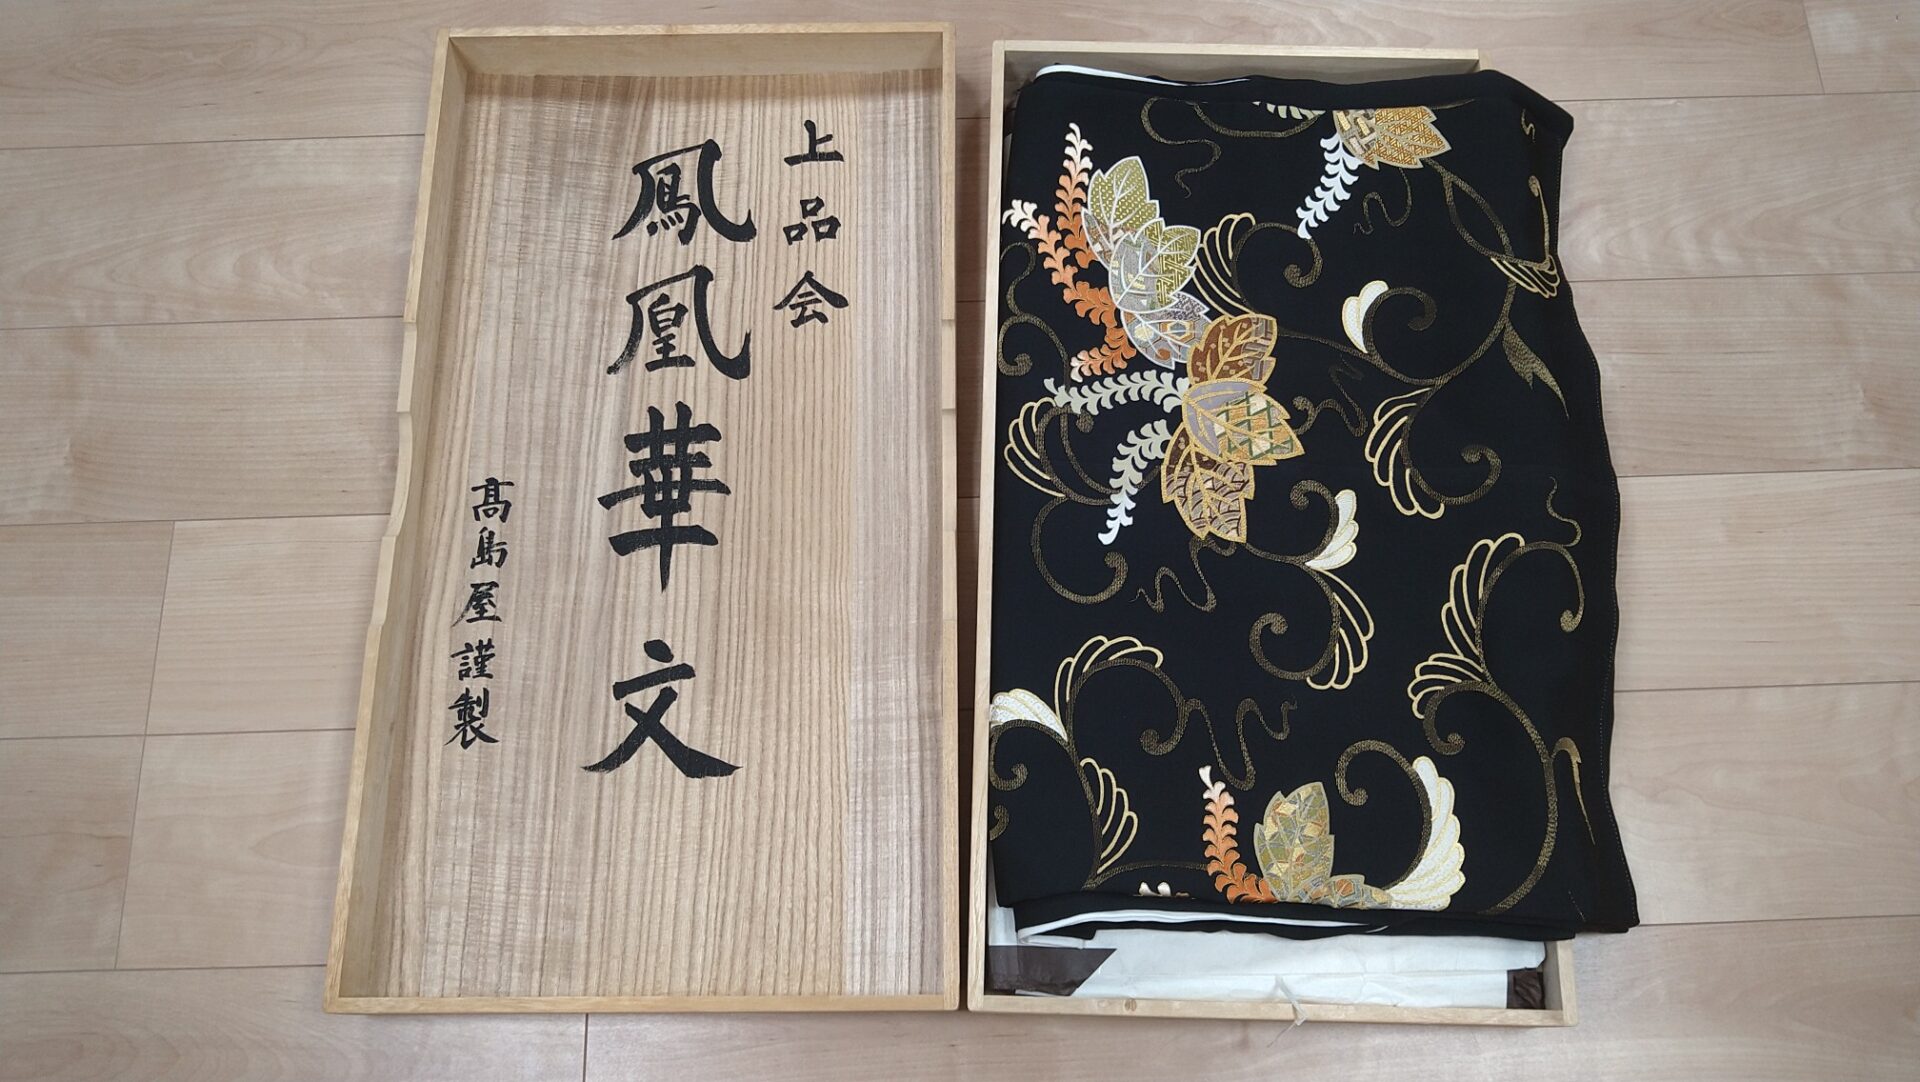 上品会
鳳凰華文
髙島屋謹製